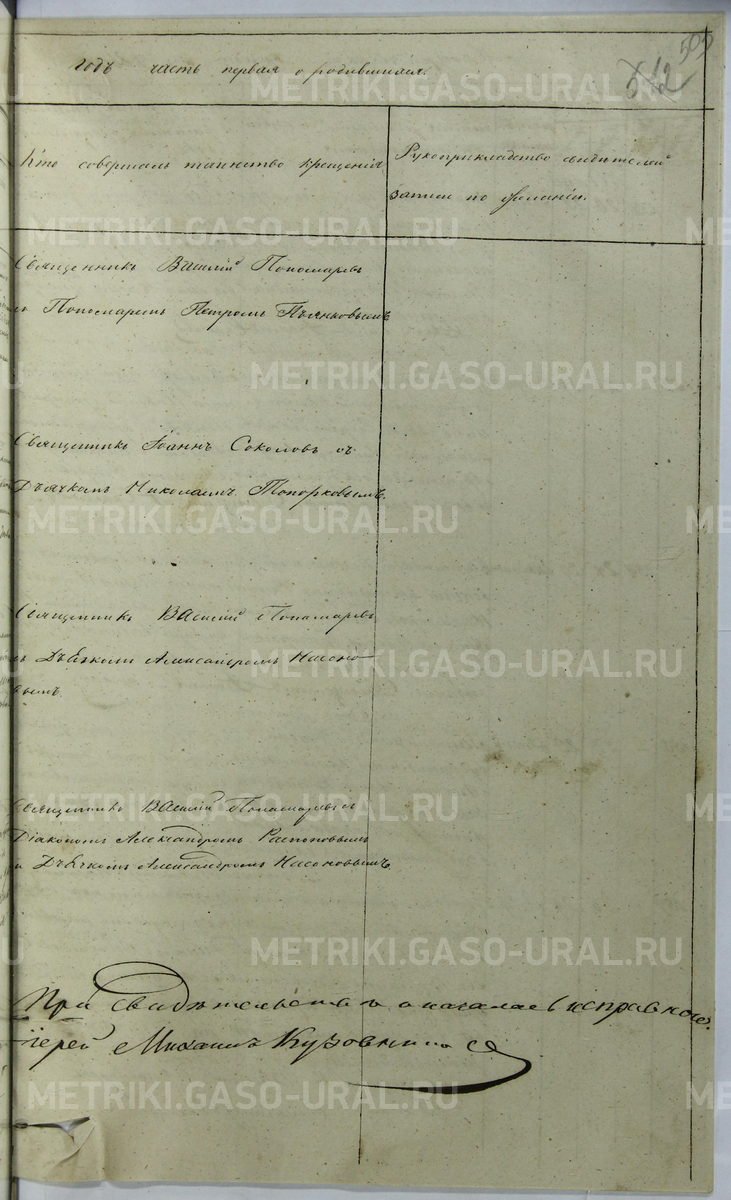 505
512
годъ часть первая о родившихся.
Кто совершалъ таинство крещенія
Рукоприкладство свидѣтелей
записи по желанію.
Священникъ Василій Пономаревъ
съ Пономаремъ Петромъ Пьянковымъ
Священникъ Іоаннъ Соколовъ съ
Дьячкомъ Николаемъ Топорковымъ.
Священникъ Василій Пономаревъ
съ Дьячкомъ Александромъ Насоно-
вымъ.
Священникъ Василій Пономаревъ съ
Діакономъ Александромъ Распоповымъ
и Дьячкомъ Александромъ Насоновымъ.
При свидѣтельствѣ оказалась исправною.
Іерей Михаилъ
METRIKI.GASO-URAL.RU